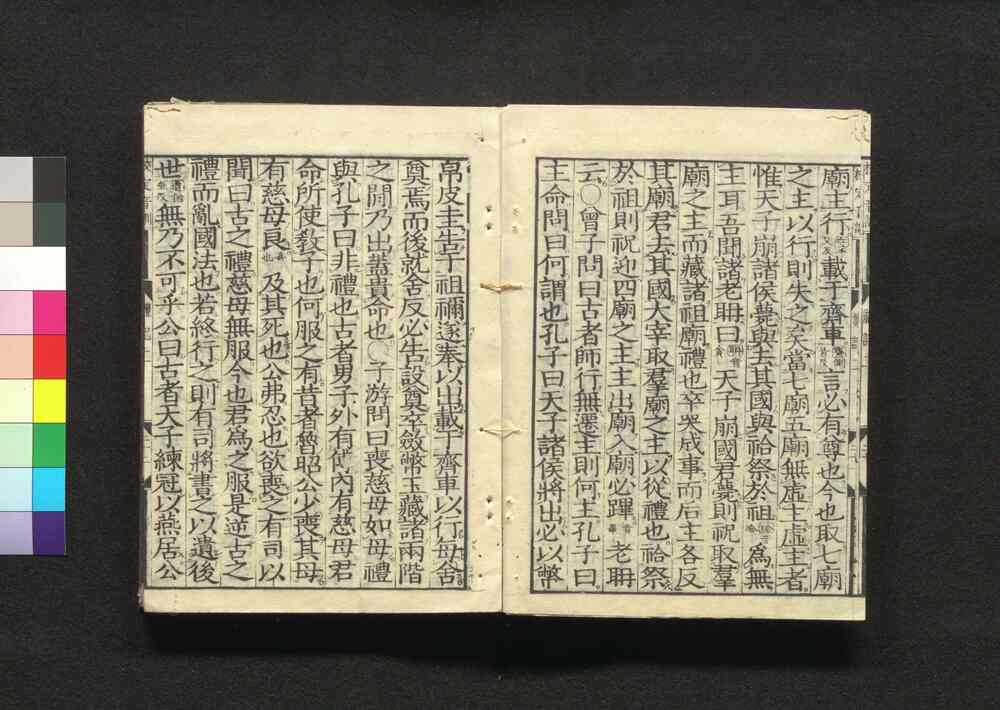 廟主行載于齊車言必有尊也今也取七廟
之主以行則失之矣當七廟五廟無虛主虛主者
惟天子崩諸侯薨與去其國與祫祭於祖為無
主耳吾聞諸老聃曰天子崩國君薨則祝取羣
廟之主而藏諸祖廟禮也卒哭成事而后主各反
其廟君去其國大宰取羣廟之主以從禮也祫祭
於祖則祝迎四廟之主主出廟入廟必蹕老聃
云○曾子問曰古者師行無遷主則何主孔子曰
主命問曰何謂也孔子曰天子諸侯將出必以幣
帛皮圭告于祖禰遂奉以出載于齊車以行每舍
奠焉而後就舍反必告設奠卒斂幣玉藏諸兩階
之間乃出蓋貴命也○子游問曰喪慈母如母禮
與孔子曰非禮也古者男子外有傅內有慈母君
命所使敎子也何服之有昔者魯昭公少喪其母
有慈母良及其死也公弗忍也欲喪之有司以
聞曰古之禮慈母無服今也君為之服是逆古之
禮而亂國法也若終行之則有司將書之以遺後
世無乃不可乎公曰古者天子練冠以燕居公